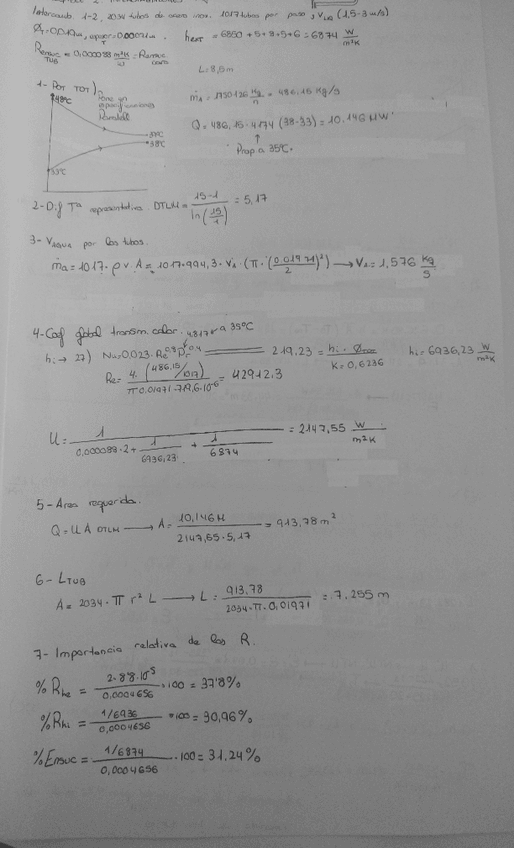 Intercamb. 1-2, 2034 tubos de acero inox. 1017 tubos por paso y V (1,5-3 m/s)
hext = 6850 + 5 + 8 + 5 + 6 = 6874 W/m²K
Rensuc TUB = 0,000088 m²K/W = Rensuc
L = 8,5m
1- Por TOT)
48ºC
39ºC
38ºC
33ºC
ṁ = 1750126 Kg/h = 486,15 Kg/s
Q = 486,15 · 4174 (38-33) = 10,146 MW
Prop a 35ºC.
2- Dif Tª representativa. DTLM = 15-1 / ln(15/1) = 5,17
3- Vagua por los tubos.
ṁa = 1017 · ρ v A = 1017 · 994,3 · Va · (π · (0,01971/2)²) → Va = 1,576 Kg/s
4- Coef global transm. calor.
4,817 a 35ºC
hi → 27) Nu = 0,023 · Re^0,8 Pr^0,4 219,23 = hi · Ø / K = 0,6236 hi = 6936,23 W/m²K
Re = 4 · (486,15/1017) / π 0,01971 · 719,6·10⁻⁶ = 42912,3
U = 1 / 0,000088·2 + 1/6936,23 + 1/6874 = 2147,55 W/m²K
5- Area requerida.
Q = U A DTLM → A = 10,146M / 2147,55 · 5,17 = 913,78 m²
6- LTUB
A = 2034 · π r² L → L = 913,78 / 2034 · π · 0,01971 = 7,255 m
7- Importancia relativa de las R.
% Rhe = 2·8'8·10⁻⁵ / 0,0004656 · 100 = 37'8%
% Rhi = 1/6936 / 0,0004656 * 100 = 30,96%
% Ensuc = 1/6874 / 0,0004656 · 100 = 31,24%